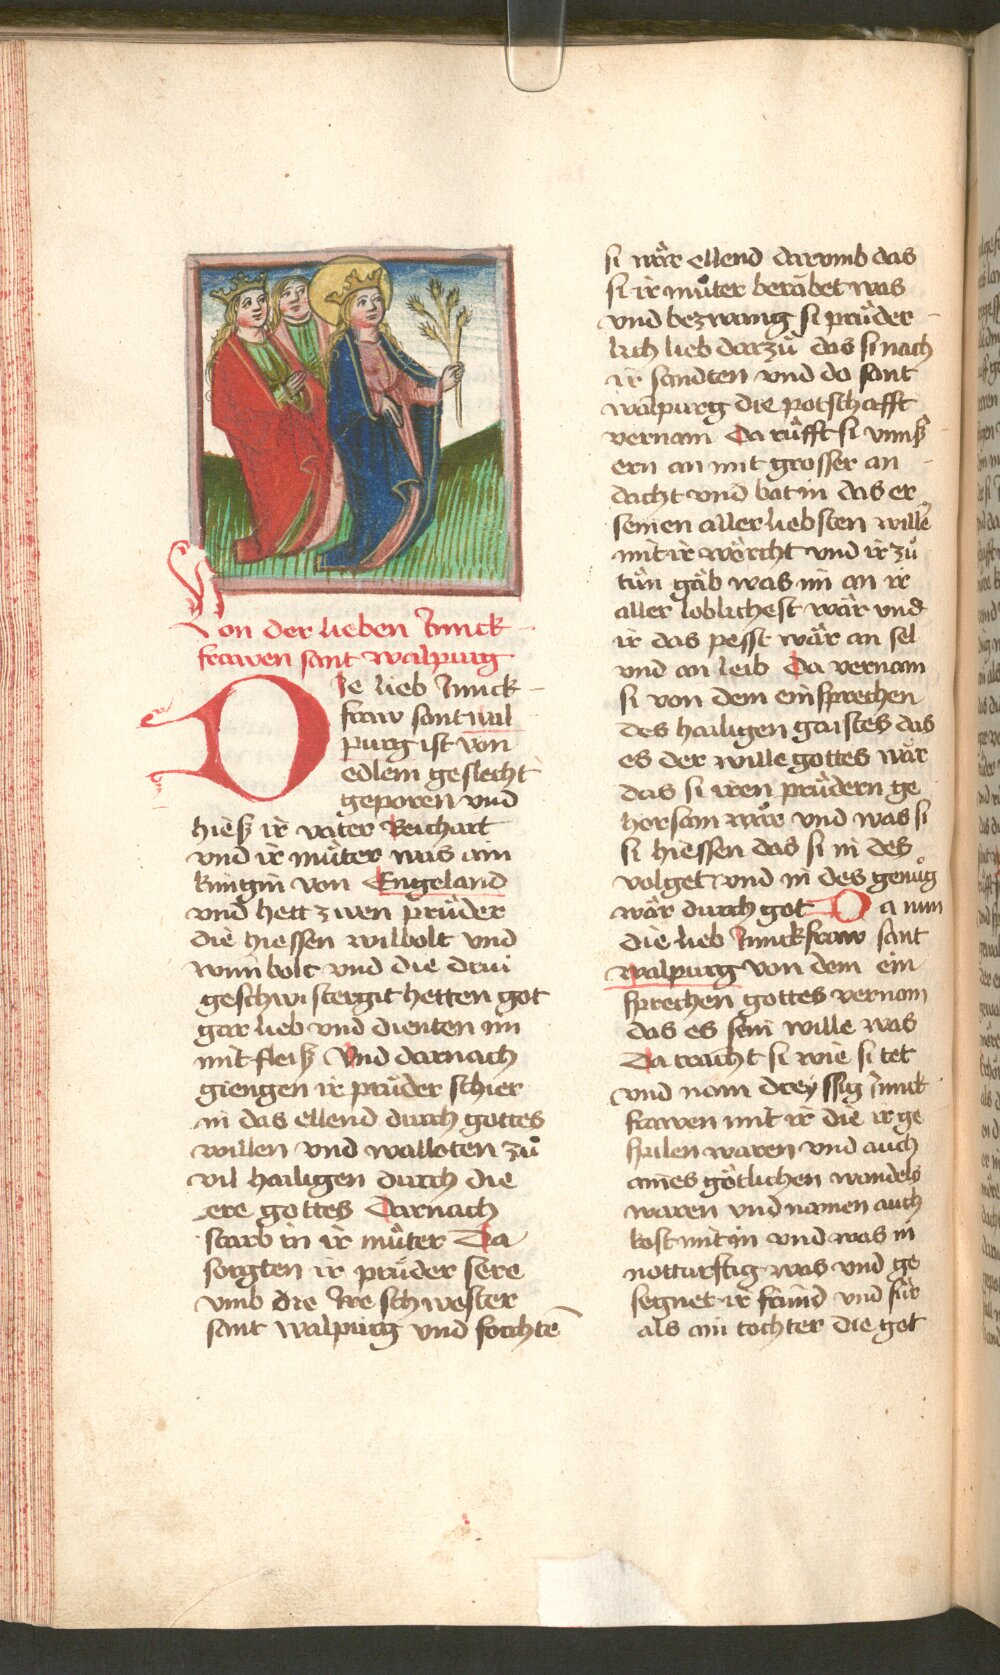 Von der lieben Junck
frawen sant walpurg
Die lieb Junck-
fraw sant wal
purg ist von
edlem geslecht
geporen und
hieß ir vater Reichart
und ir muͦter was ain
kungin von Engeland
und hett zwen pruͤder
die hiessen wilbolt und
wunibolt und die drui
geschwistergit hetten got
gar lieb und dienten im
mit fleiß Und darnach
giengen ir pruͤder schier
in das ellend durch gottes
willen und walloten zuͦ
vil hailigen durch die
ere gottes Darnach
starb in ir muͦter Da
sorgten ir pruͤder sere
umb die Ire schwester
sant walpurg und forchtē
si waͤr ellend darumb das
si ir muͦter beraͤbet was
und bezwang si pruͤder-
lich lieb darzuͦ das si nach
ir sandten und do sant
walpurg die potschafft
vernam Da ruͤfft si unnß
ern an mit grosser an-
dacht und bat in das er
seinen aller liebsten willē
mit ir woͤrcht und ir zuͦ
tuͤn gaͤb was im an ir
aller loblichest waͤr und
ir das pesst waͤr an sel
und an leib Da vernam
si von dem einsprechen
des hailigen gaistes das
es der wille gottes waͤr
das si iren pruͤdern ge
horsam waͤr und was si
si hiessen das si in des
volget und in des genuͦg
waͤr durch got Da nun
die lieb Junckfraw sant
walpurg von dem ein
sprechen gottes vernam
das es sein wille was
Da tracht si wie si tet
und nam dreyssig iunck
frawen mit ir die ir ge
spilen waren und auch
aines goͤtlichen wandels
waren und namen auch
kost mit in und was in
notturftig was und ge
segnet ir fraͤind und fuͤr
als ain tochter die got